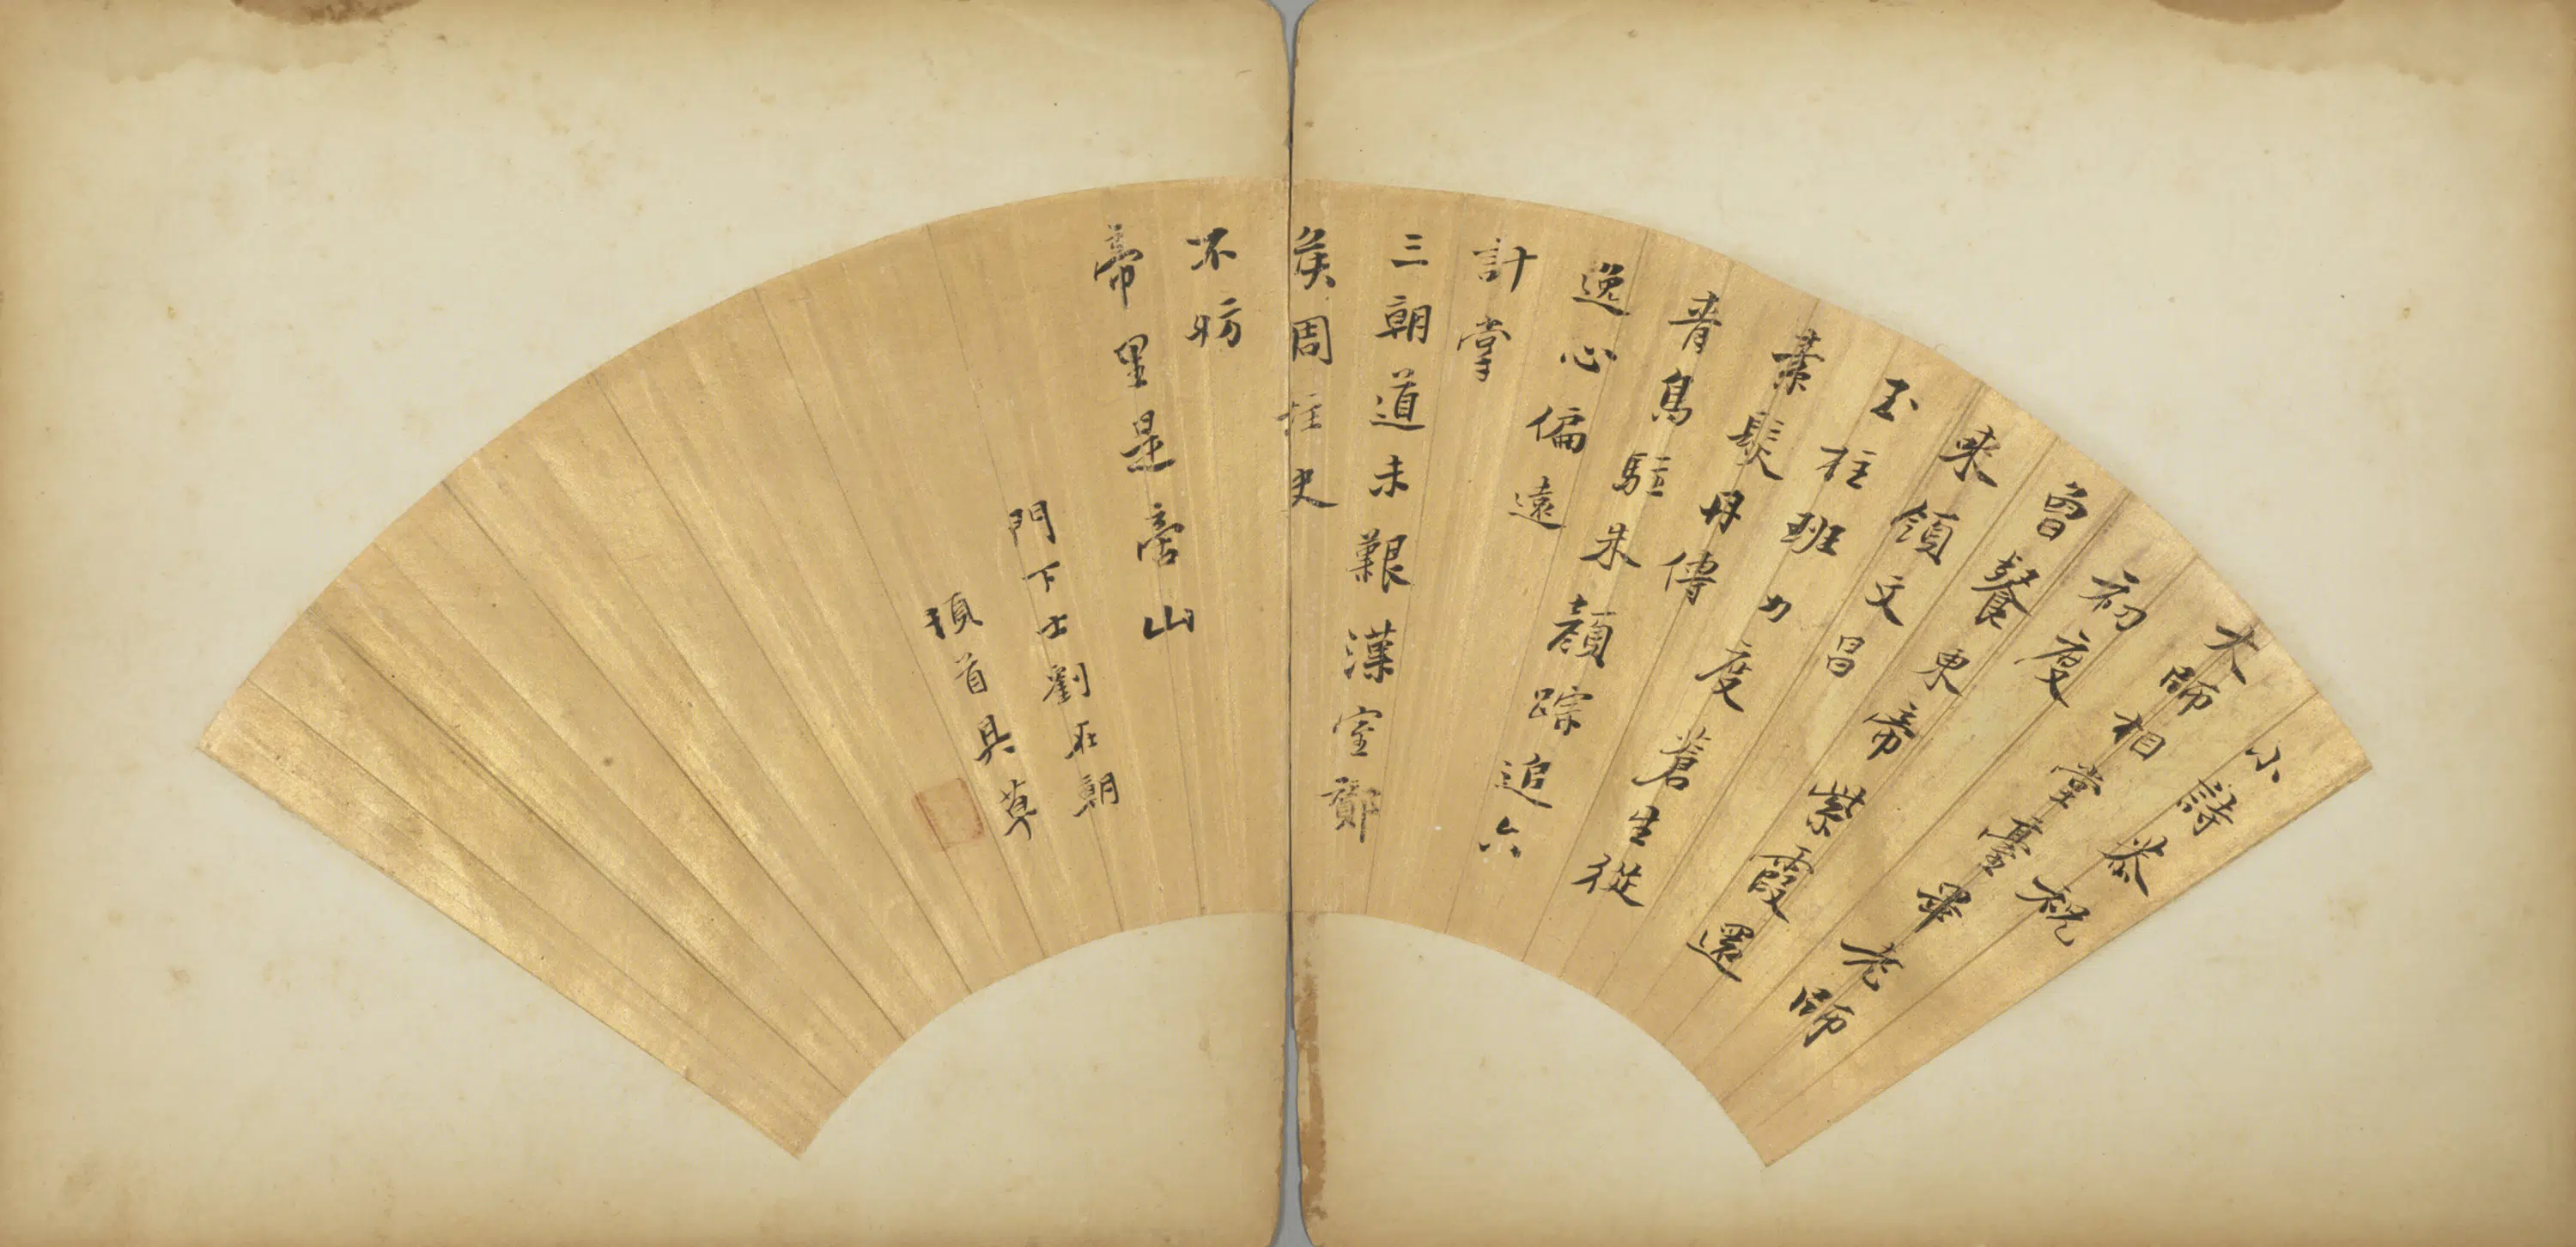 小詩恭祝
大師相堂臺畢老師
初度
曾餐東帝紫霞還
來領文昌
玉柱班力度蒼生從
素髮丹傳
青鳥駐朱顏踪追六
逸心偏遠
計掌
三朝道未艱漢室酇
侯周柱史
不妨
帝里是商山
門下士劉在朝
頓首具草